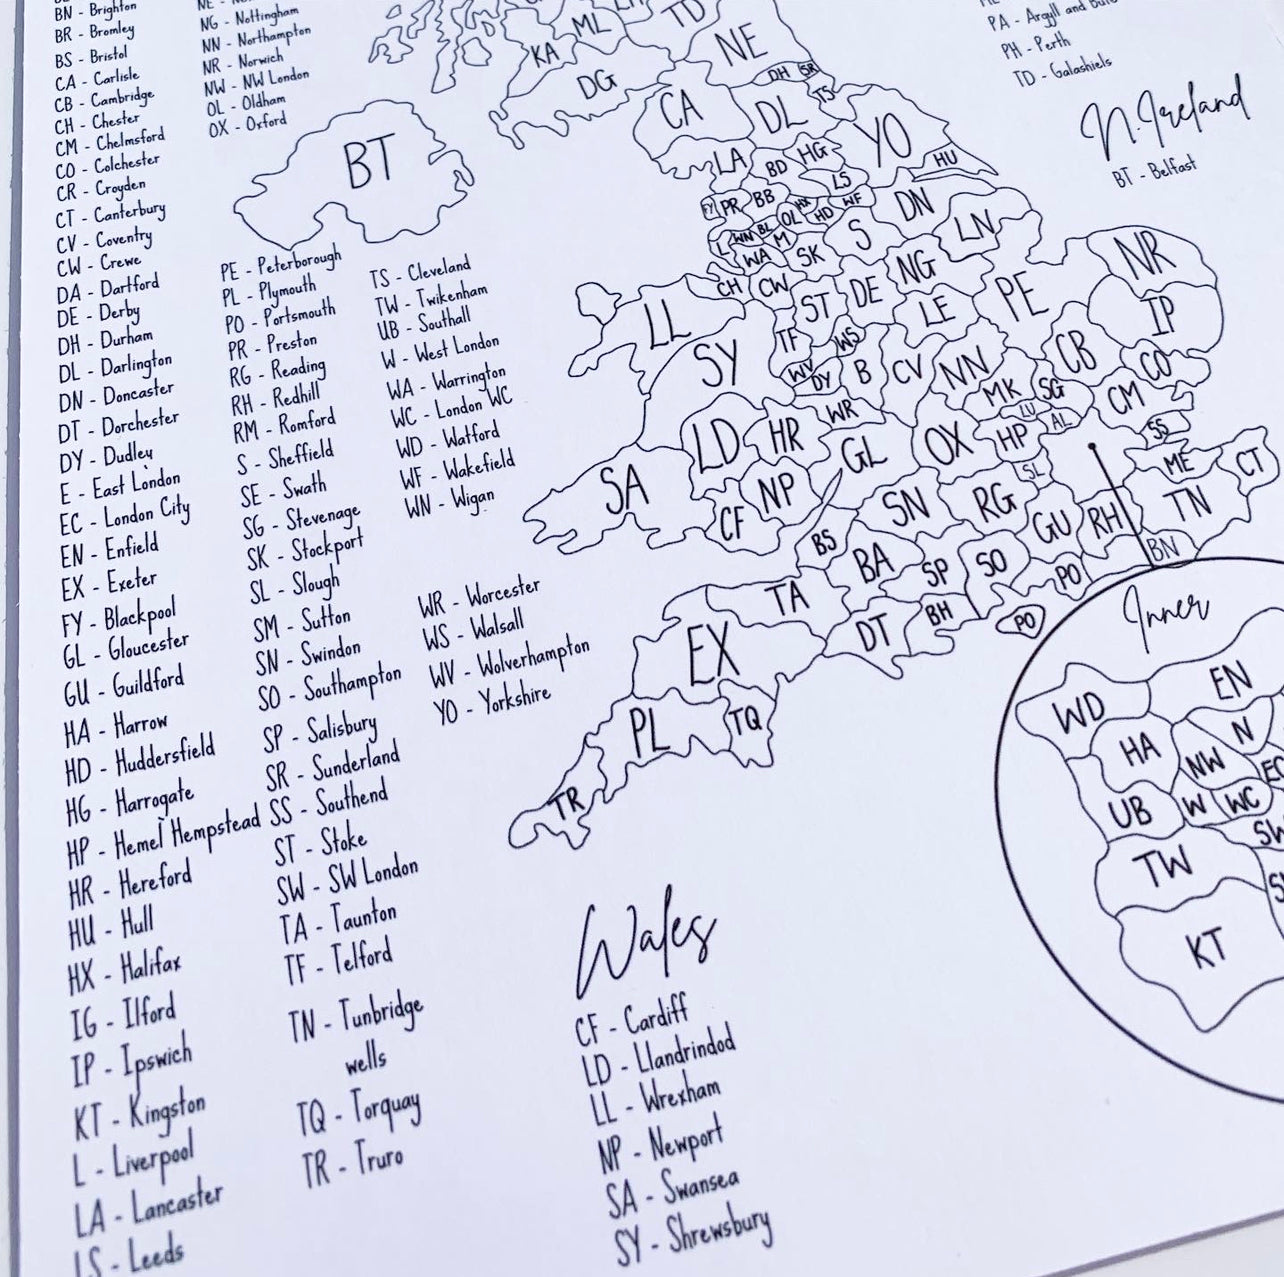 BN - Brighton
BR - Bromley
BS - Bristol
CA - Carlisle
CB - Cambridge
CH - Chester
CM - Chelmsford
CO - Colchester
CR - Croyden
CT - Canterbury
CV - Coventry
CW - Crewe
DA - Dartford
DE - Derby
DH - Durham
DL - Darlington
DN - Doncaster
DT - Dorchester
DY - Dudley
E - East London
EC - London City
EN - Enfield
EX - Exeter
FY - Blackpool
GL - Gloucester
GU - Guildford
HA - Harrow
HD - Huddersfield
HG - Harrogate
HP - Hemel Hempstead
HR - Hereford
HU - Hull
HX - Halifax
IG - Ilford
IP - Ipswich
KT - Kingston
L - Liverpool
LA - Lancaster
LS - Leeds
NG - Nottingham
NN - Northampton
NR - Norwich
NW - NW London
OL - Oldham
OX - Oxford
PE - Peterborough
PL - Plymouth
PO - Portsmouth
PR - Preston
RG - Reading
RH - Redhill
RM - Romford
S - Sheffield
SE - Swath
SG - Stevenage
SK - Stockport
SL - Slough
SM - Sutton
SN - Swindon
SO - Southampton
SP - Salisbury
SR - Sunderland
SS - Southend
ST - Stoke
SW - SW London
TA - Taunton
TF - Telford
TN - Tunbridge
wells
TQ - Torquay
TR - Truro
TS - Cleveland
TW - Twikenham
UB - Southall
W - West London
WA - Warrington
WC - London WC
WD - Watford
WF - Wakefield
WN - Wigan
WR - Worcester
WS - Walsall
WV - Wolverhampton
YO - Yorkshire
PA - Argyll and Bute
PH - Perth
TD - Galashiels
N.Ireland
BT - Belfast
BT
KA
ML
TD
DG
NE
CA
DH
SR
DL
TS
YO
LA
BD
HG
HU
LS
FY
PR
BB
HX
WF
OL
HD
DN
L
WN
BL
M
S
LN
WA
SK
CH
CW
ST
DE
NG
NR
LL
LE
PE
IP
SY
TF
WS
WV
DY
B
CV
NN
CB
CO
MK
SG
CM
LD
HR
WR
LU
AL
GL
OX
HP
SS
SA
NP
SL
ME
CT
CF
SN
RG
TN
BS
GU
RH
BN
BA
SP
SO
PO
TA
DT
BH
PO
EX
PL
TQ
TR
Inner
WD
EN
HA
N
NW
EC
UB
W
WC
SW
TW
KT
Wales
CF - Cardiff
LD - Llandrindod
LL - Wrexham
NP - Newport
SA - Swansea
SY - Shrewsbury